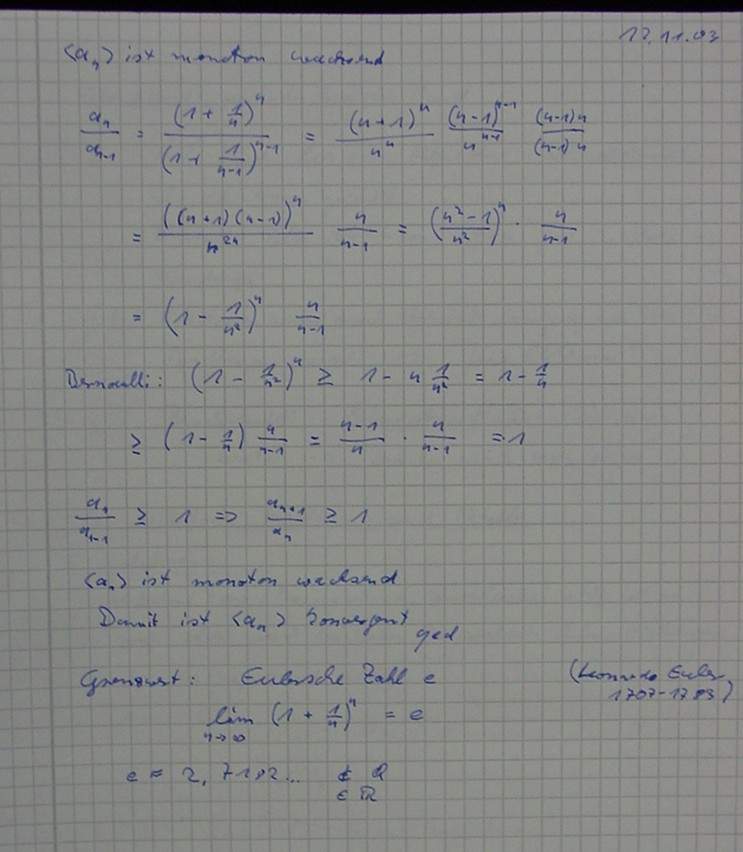 17.11.03
<aₙ> ist monoton wachsend
aₙ/aₙ₋₁ = (1 + 1/n)ⁿ / (1 + 1/(n-1))ⁿ⁻¹ = (n+1)ⁿ/nⁿ (n-1)ⁿ⁻¹/nⁿ⁻¹ (n-1)n/(n-1)n
= ((n+1)(n-1))ⁿ/n²ⁿ n/(n-1) = ((n²-1)/n²)ⁿ · n/(n-1)
= (1 - 1/n²)ⁿ n/(n-1)
Bernoulli: (1 - 1/n²)ⁿ ≥ 1 - n 1/n² = 1 - 1/n
≥ (1 - 1/n) n/(n-1) = (n-1)/n · n/(n-1) = 1
aₙ/aₙ₋₁ ≥ 1 => aₙ₊₁/aₙ ≥ 1
<aₙ> ist monoton wachsend
Damit ist <aₙ> konvergent
qed
Grenzwert: Eulersche Zahl e (Leonardo Euler, 1707-1783)
lim n→∞ (1 + 1/n)ⁿ = e
e ≈ 2,7182... ∉ ℚ
∈ ℝ